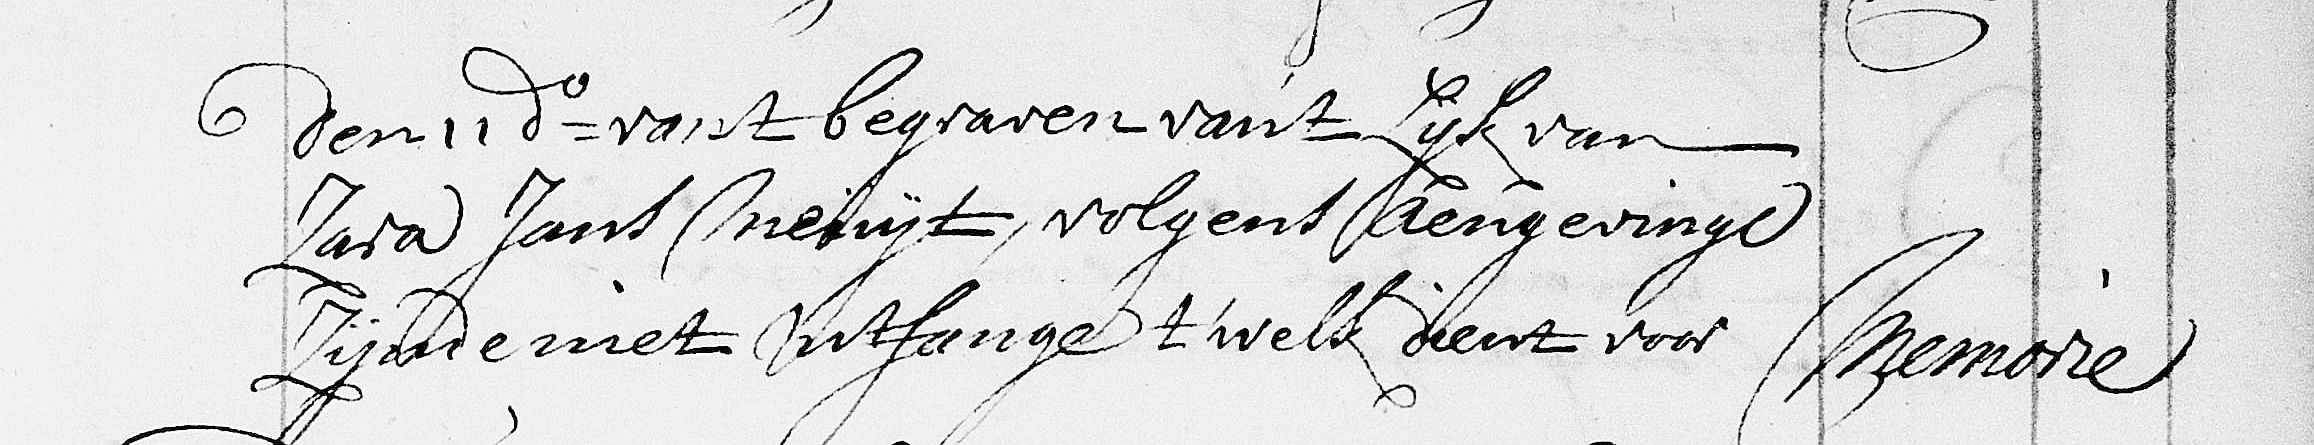 Den 11 d:o vant begraven van't Lijk van
Zara Jans Meruijt, volgens Aengevinge
Zijnde niet ontfange t'welk dient voor Memorie